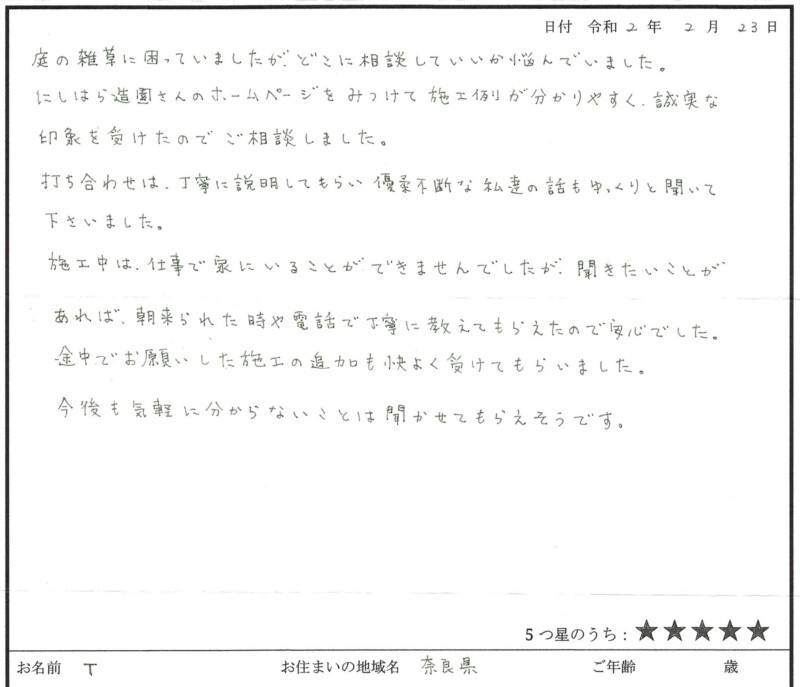 日付 令和 2 年 2 月 23 日
庭の雑草に困っていましたが、どこに相談していいか悩んでいました。
にしはら造園さんのホームページをみつけて施工例が分かりやすく、誠実な
印象を受けたのでご相談しました。
打ち合わせは、丁寧に説明してもらい優柔不断な私達の話もゆっくりと聞いて
下さいました。
施工中は、仕事で家にいることができませんでしたが、聞きたいことが
あれば、朝来られた時や電話で丁寧に教えてもらえたので安心でした。
途中でお願いした施工の追加も快よく受けてもらいました。
今後も気軽に分からないことは聞かせてもらえそうです。
5つ星のうち：★★★★★
お名前 T お住まいの地域名 奈良県 ご年齢 歳